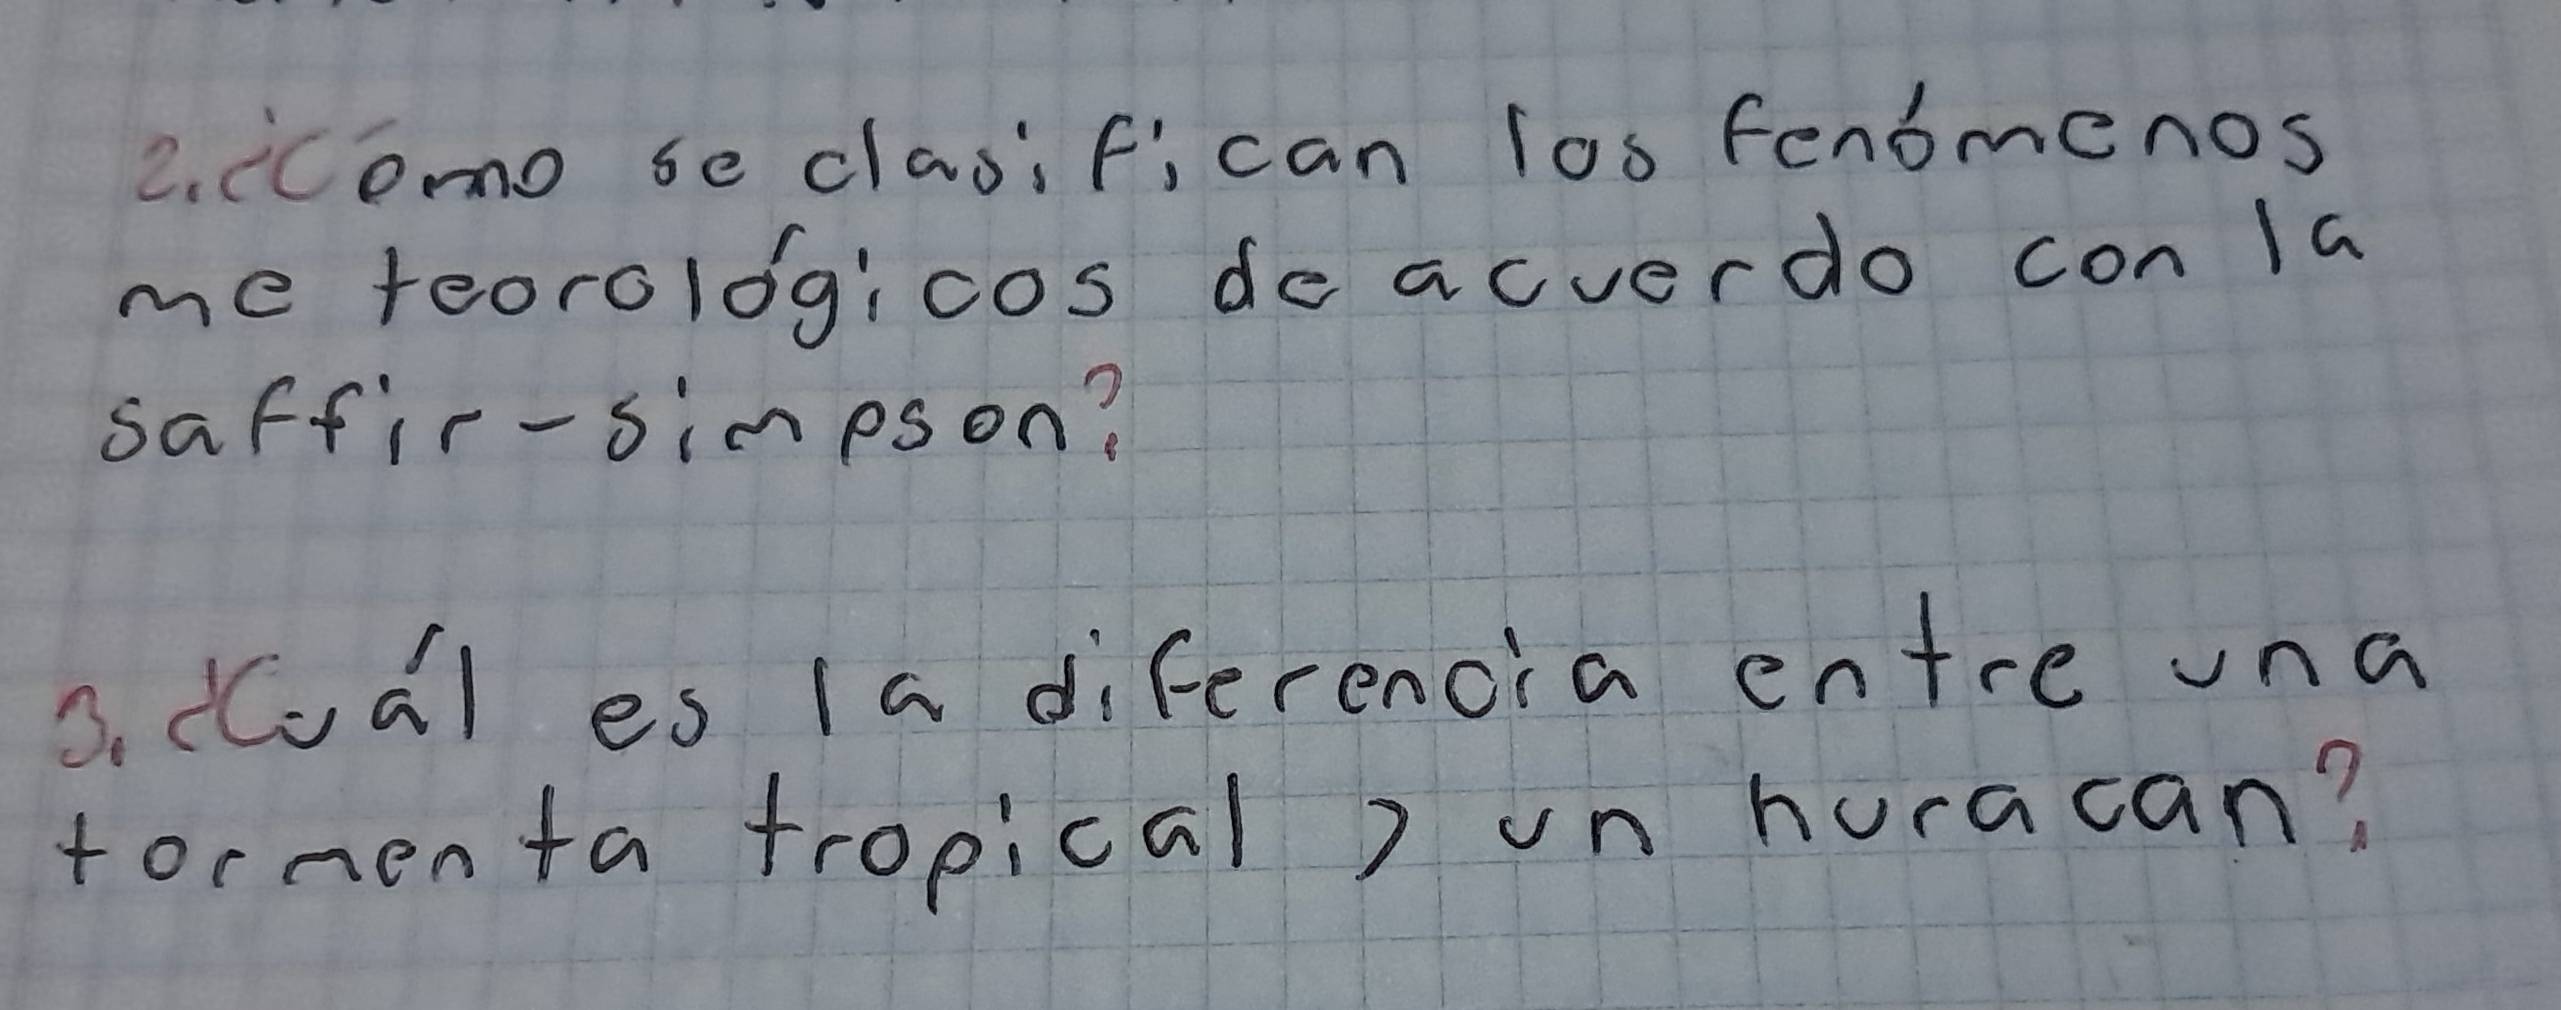 2. ¿Cómo se clasifican los fenómenos
meteorológicos de acuerdo con la
saffir-simpson?
3. ¿Cuál es la diferencia entre una
tormenta tropical y un huracan?